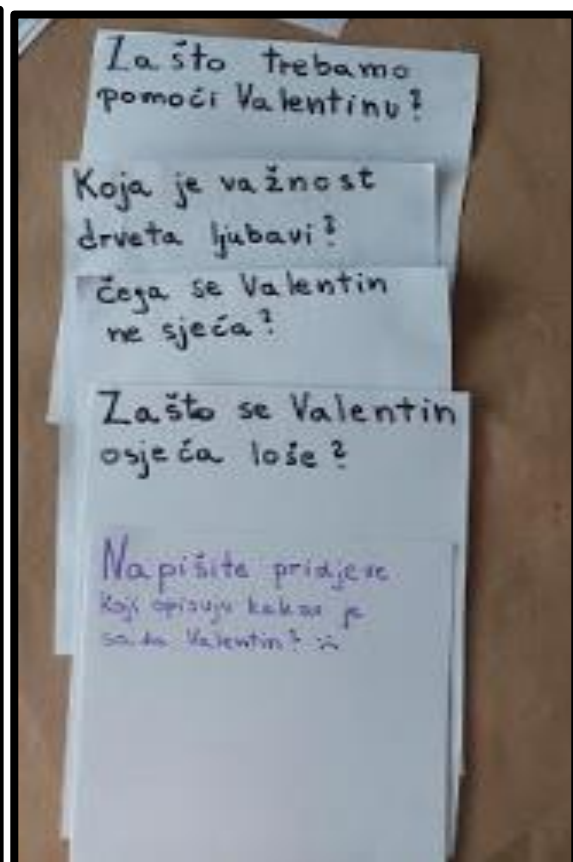 Zašto trebamo
pomoći Valentinu?
Koja je važnost
drveta ljubavi?
Čega se Valentin
ne sjeća?
Zašto se Valentin
osjeća loše?
Napišite pridjeve
koji opisuju kakav je
sada Valentin?